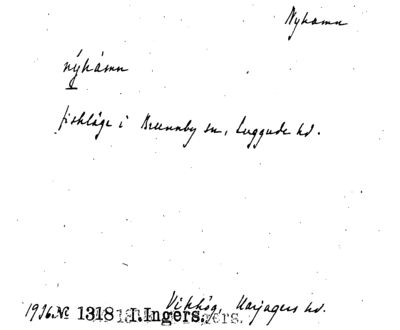 Nyhamn
nýhámn
fiskläge i Brunnby sn, Luggude hd.
Vikhög, Harjagers hd.
1936 № 1318 I. Ingers.